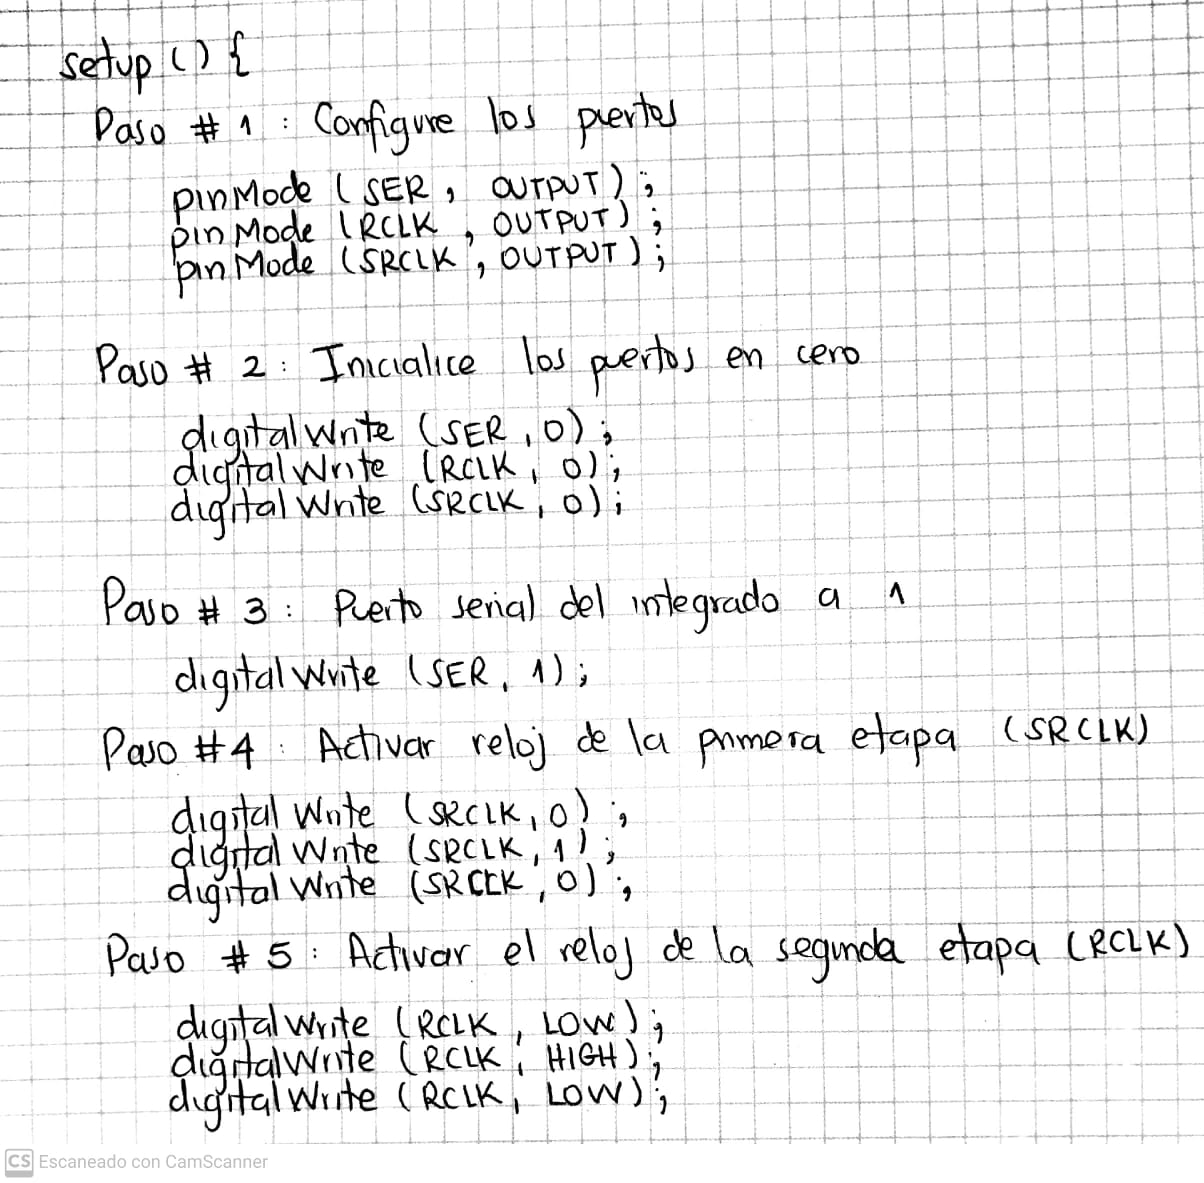 setup () {
Paso # 1 : Configure los puertos
pinMode (SER, OUTPUT);
pinMode (RCLK, OUTPUT);
pinMode (SRCLK, OUTPUT);
Paso # 2: Inicialice los puertos en cero
digitalWrite (SER, 0);
digitalWrite (RCLK, 0);
digitalWrite (SRCLK, 0);
Paso # 3: Puerto serial del integrado a 1
digitalWrite (SER, 1);
Paso #4 : Activar reloj de la primera etapa (SRCLK)
digitalWrite (SRCLK, 0);
digitalWrite (SRCLK, 1);
digitalWrite (SRCLK, 0);
Paso # 5: Activar el reloj de la segunda etapa (RCLK)
digitalWrite (RCLK, LOW);
digitalWrite (RCLK, HIGH);
digitalWrite (RCLK, LOW);
CS Escaneado con CamScanner